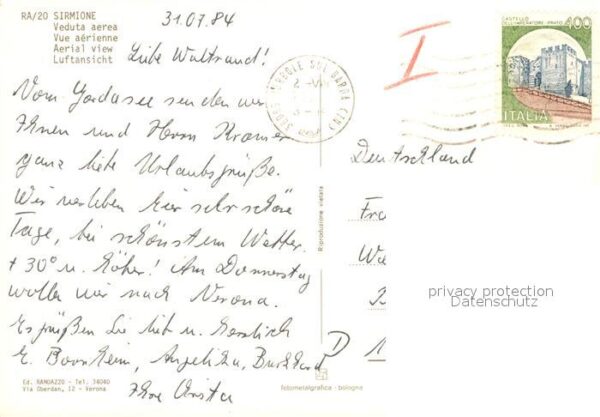 RA/20 SIRMIONE
Veduta aerea
Vue aérienne
Aerial view
Luftansicht
31.07.84
Liebe Waltraud!
Vom Gardasee senden wir
Ihnen und Herrn Kramer
ganz liebe Urlaubsgrüße.
Wir verleben hier sehr schöne
Tage, bei schönstem Wetter.
+ 30° u. höher! Am Donnerstag
wollen wir nach Verona.
Es grüßen Sie lieb u. herzlich
E. Angelika, Burkhard
Ihre
Ed. RANDAZZO - Tel. 34040
Via Oberdan, 12 - Verona
Riproduzione vietata
fotometalgrafica - bologna
I
CASTELLO
DELL'IMPERATORE - PRATO
400
ITALIA
Deutschland
Fra
Wa
D
privacy protection
Datenschutz